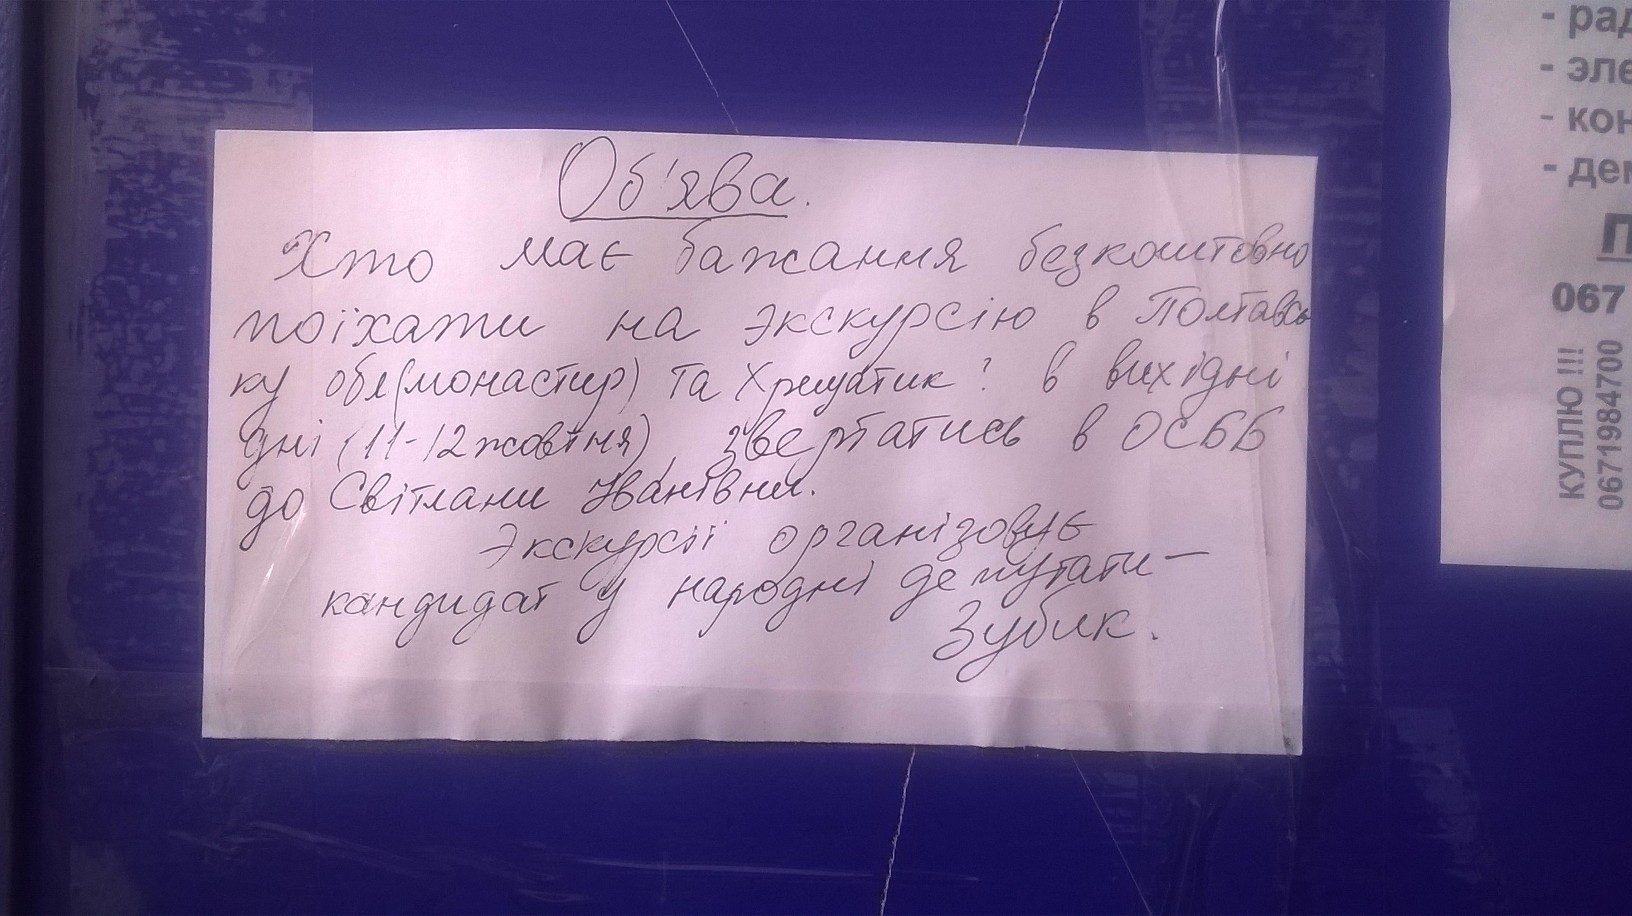 Об'ява.
Хто має бажання безкоштовно
поїхати на экскурсію в Полтавсь
ку обл(монастир) та Хрещатик? в вихідні
дні (11-12 жовтня), звертатись в ОСББ
до Світлани Іванівни.
Экскурсії організовує
кандидат у народні депутати -
Зубик.
- рад
- эле
- кон
- дем
П
067
КУПЛЮ !!!
0671984700